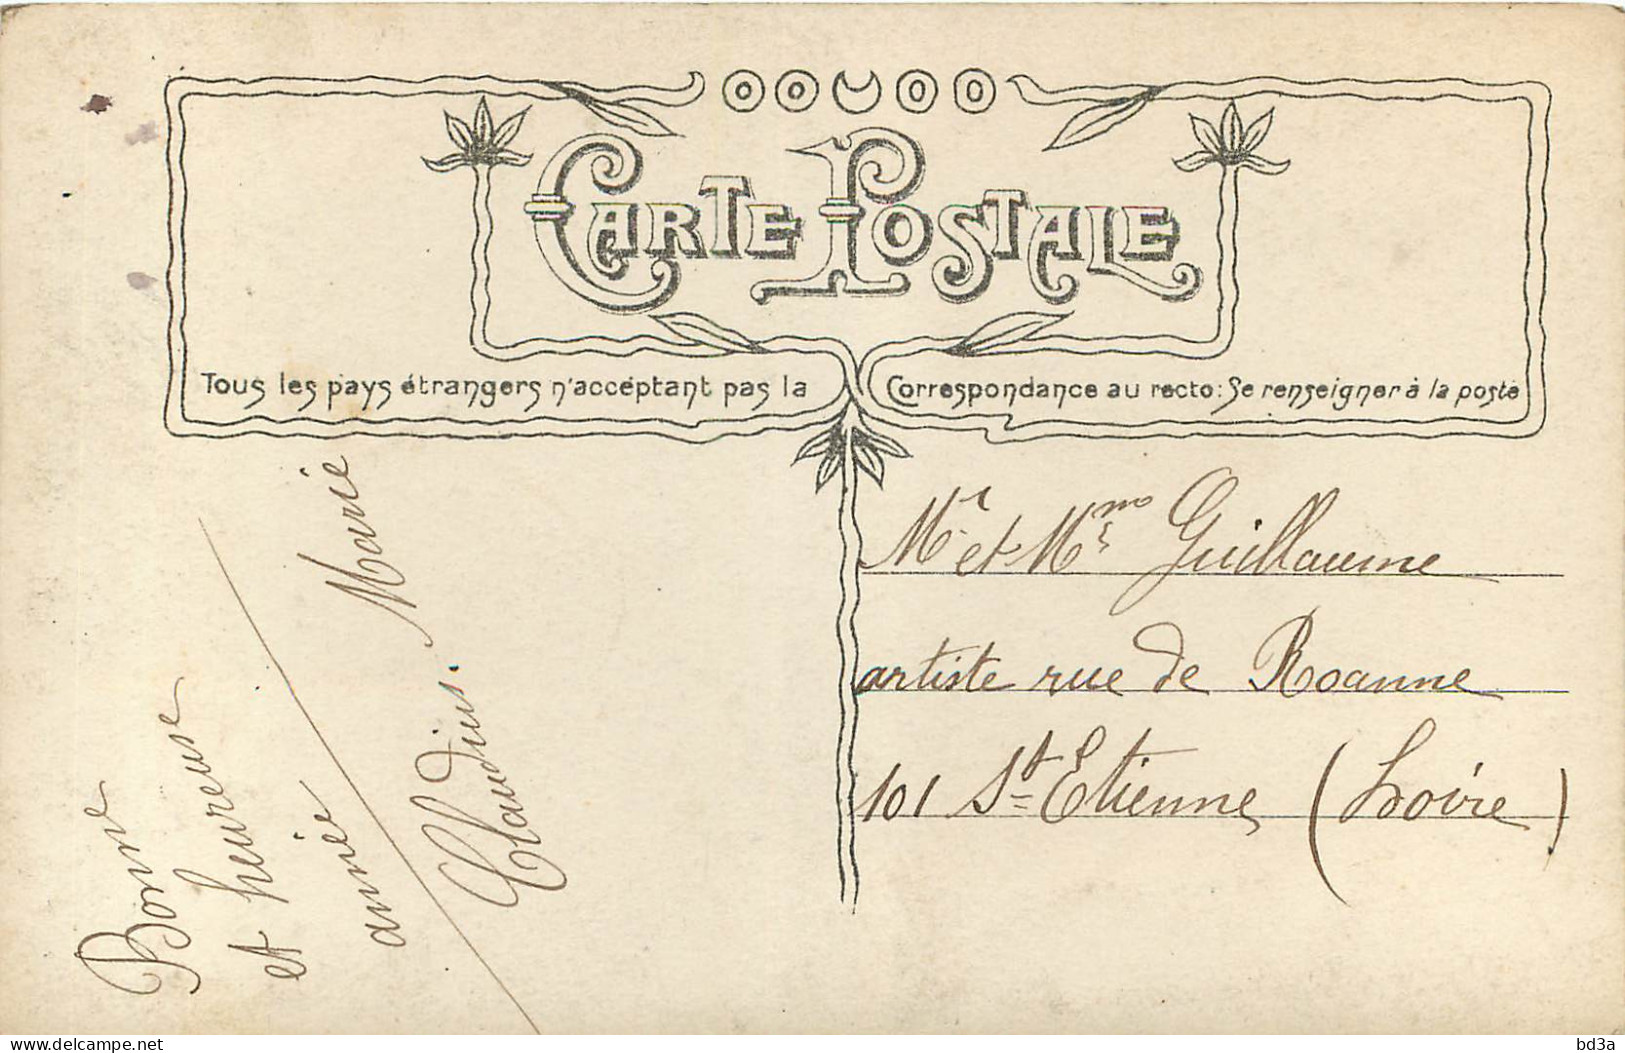 CARTE POSTALE
Tous les pays étrangers n'acceptant pas la Correspondance au recto: Se renseigner à la poste
Bonne
et heureuse
année
Marie
Claudius.
Mr et Mme Guillaume
artiste rue de Roanne
101 St Etienne (Loire)
delcampe.net
bd3a